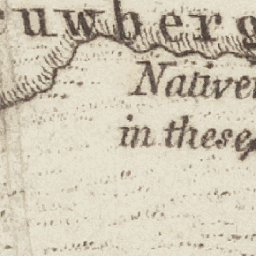 ruwberg
Native
in these